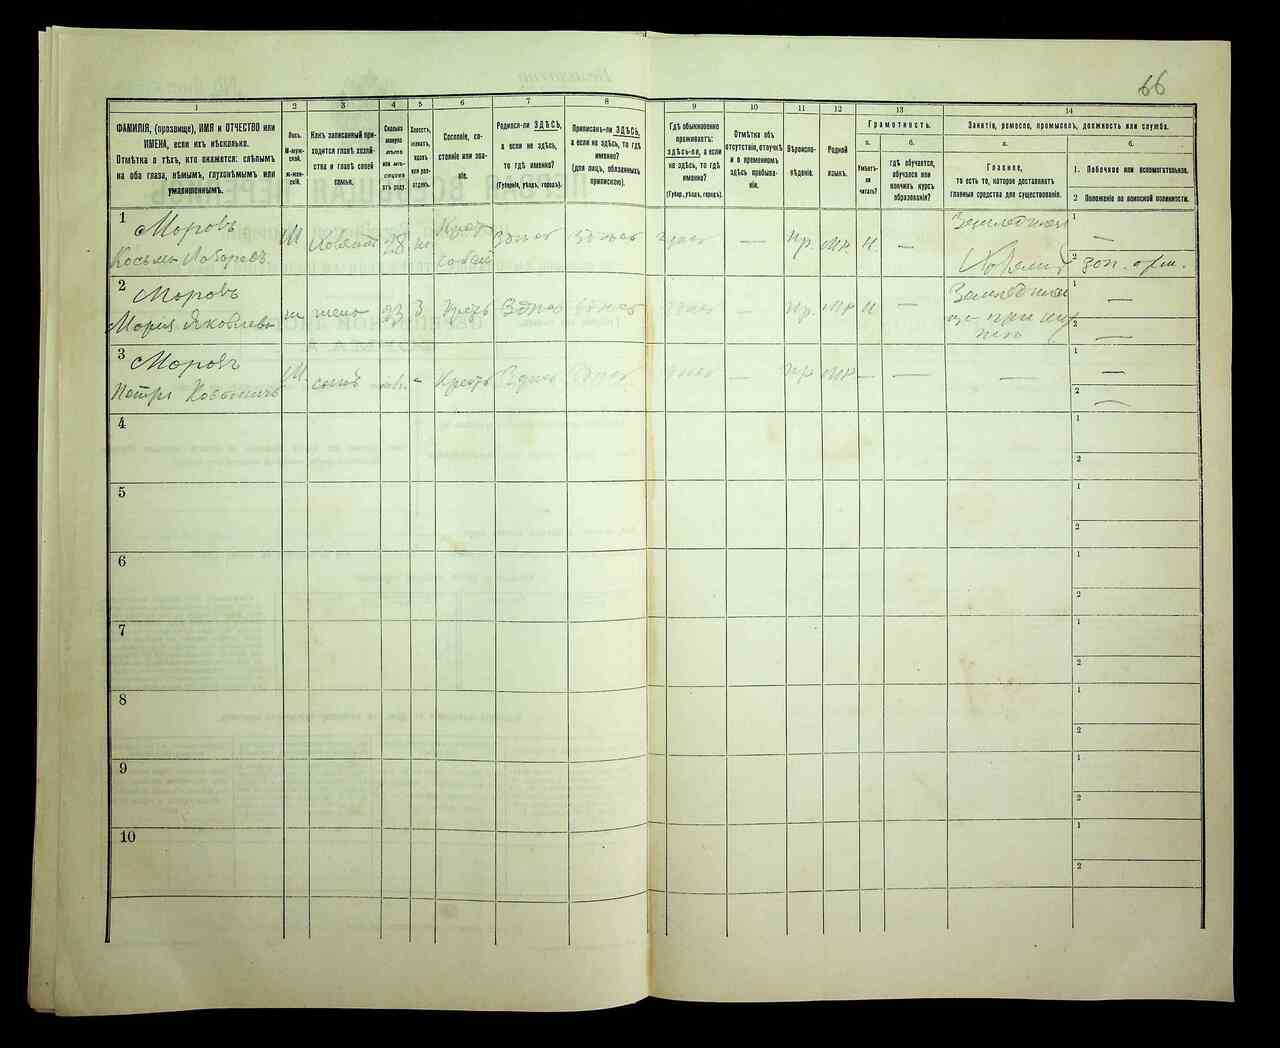 66
1 2 3 4 5 6 7 8 9 10 11 12 13 14
ФАМИЛІЯ, (прозвище), ИМЯ и ОТЧЕСТВО или
ИМЕНА, если ихъ нѣсколько.
Отмѣтка о тѣхъ, кто окажется: слѣпымъ
на оба глаза, нѣмымъ, глухонѣмымъ или
умалишеннымъ.
Полъ.
М-муж-
ской.
Ж-жен-
скій.
Какъ записанный при-
ходится главѣ хозяй-
ства и главѣ своей
семьи.
Сколько
минуло
лѣтъ
или мѣ-
сяцевъ
отъ роду.
Холостъ,
женатъ,
вдовъ
или раз-
веденъ.
Сословіе, со-
стояніе или зва-
ніе.
Родился-ли ЗДѢСЬ,
а если не здѣсь,
то гдѣ именно?
(Губернія, уѣздъ, городъ).
Приписанъ-ли ЗДѢСЬ,
а если не здѣсь, то гдѣ
именно?
(для лицъ, обязанныхъ
припискою).
Гдѣ обыкновенно
проживаетъ:
здѣсь-ли, а если
не здѣсь, то гдѣ
именно?
(Губер., уѣздъ, городъ).
Отмѣтка объ
отсутствіи, отлучкѣ
и о временномъ
здѣсь пребыва-
ніи.
Вѣроиспо-
вѣданіе.
Родной
языкъ.
Грамотность.
а.
Умѣетъ-
ли
читать?
б.
гдѣ обучается,
обучался или
кончилъ курсъ
образованія?
Занятіе, ремесло, промыселъ, должность или служба.
а.
Главное,
то есть то, которое доставляетъ
главныя средства для существованія.
б.
1. Побочное или вспомогательное.
2 Положеніе по воинской повинности.
1
Моровъ
Косьма М 28 Крест Здѣсь Здѣсь Здѣсь — Пр. Н. —
1 —
2
2
Моровъ
Марія Яковлева ж жена 23 З Крест Здѣсь Здѣсь Здѣсь — Пр. Н —
1 —
2 —
3
Моровъ
Петръ Косьмичъ М сынъ - Крест Здѣсь Здѣсь Здѣсь — Пр — — —
1 —
2 —
4 1
2
5 1
2
6 1
2
7 1
2
8 1
2
9 1
2
10 1
2